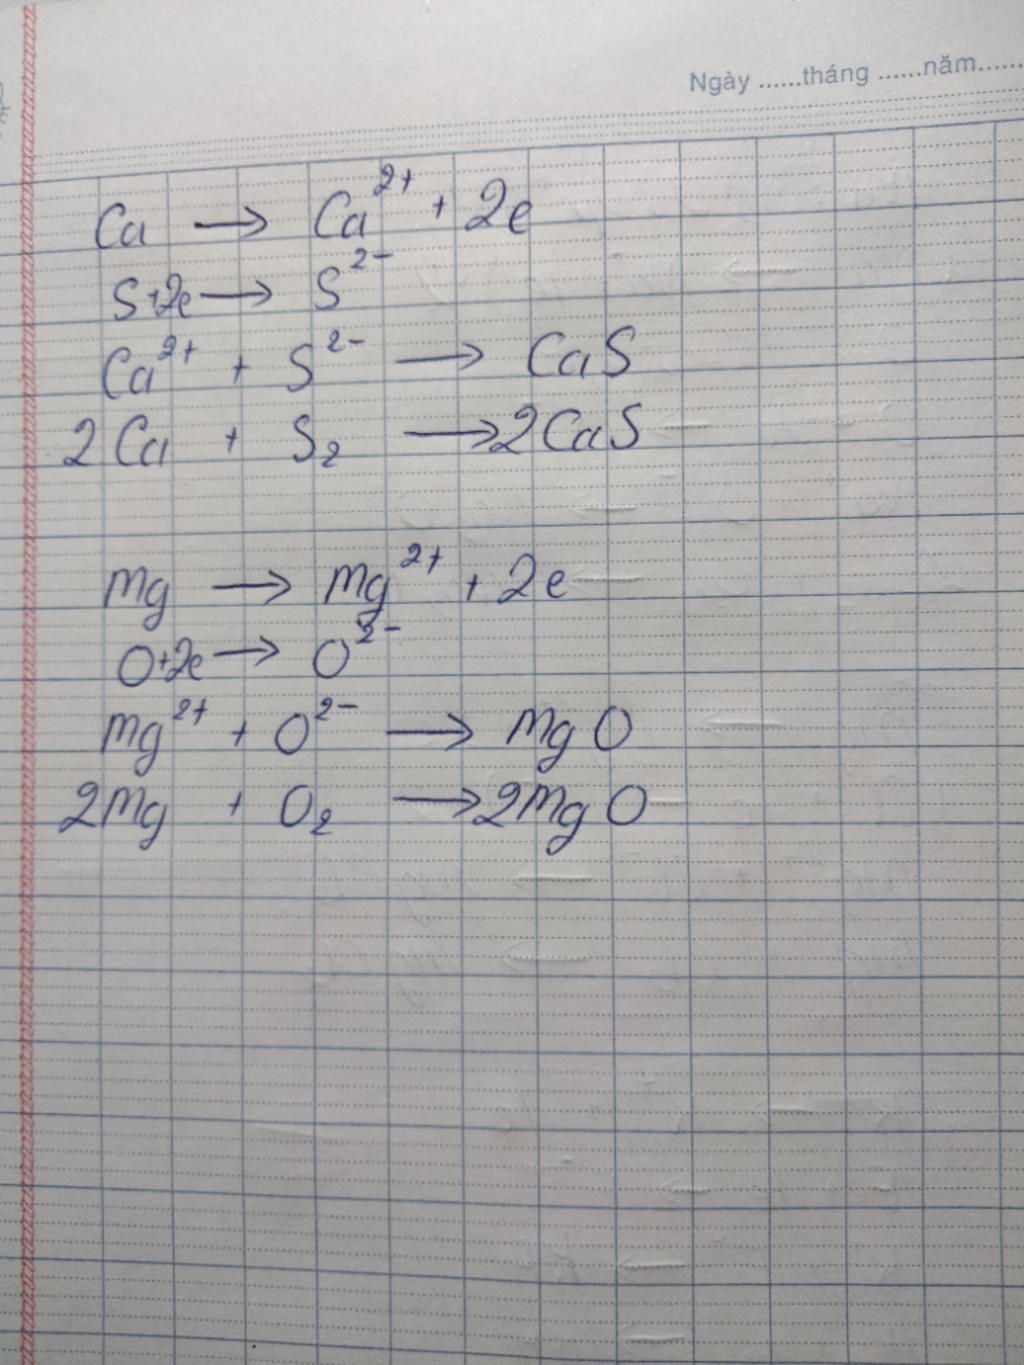 Ngày ......tháng ......năm......
Ca → Ca²⁺ + 2e
S+2e → S²⁻
Ca²⁺ + S²⁻ → CaS
2Ca + S₂ → 2CaS
Mg → Mg²⁺ + 2e
O+2e → O²⁻
Mg²⁺ + O²⁻ → MgO
2Mg + O₂ → 2MgO